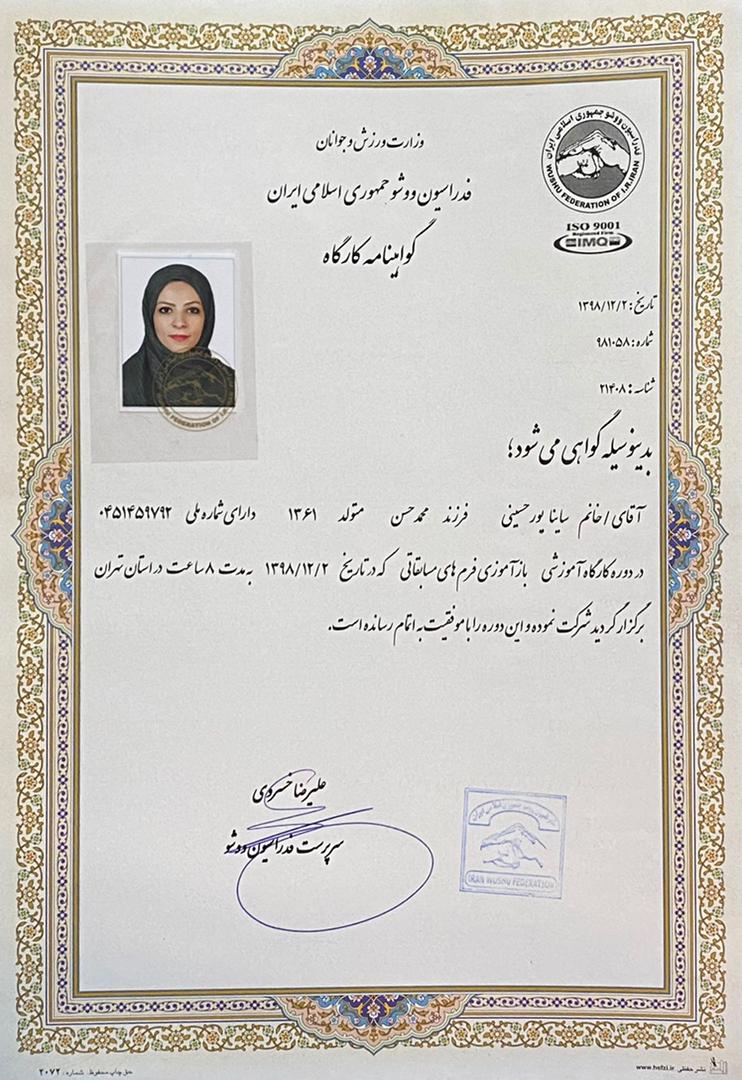 وزارت ورزش و جوانان
فدراسیون ووشو جمهوری اسلامی ایران
گواهینامه کارگاه
فدراسیون ووشو جمهوری اسلامی ایران
WUSHU FEDERATION OF I.R.IRAN
ISO 9001
Registered Firm
IMQ
تاریخ: ۱۳۹۸/۱۲/۲
شماره: ۹۸۱۰۵۸
شناسه: ۲۱۴۰۸
بدینوسیله گواهی می شود؛
آقای / خانم ساینا پورحسینی فرزند محمدحسن متولد ۱۳۶۱ دارای شماره ملی ۰۴۵۱۴۵۹۷۹۲
در دوره کارگاه آموزشی بازآموزی فرم های مسابقاتی که در تاریخ ۱۳۹۸/۱۲/۲ به مدت ۸ ساعت در استان تهران
برگزار گردید شرکت نموده و این دوره را با موفقیت به اتمام رسانده است.
علیرضا خسروی
سرپرست فدراسیون ووشو
IRAN WUSHU FEDERATION
حق چاپ محفوظ. شماره: ۲۰۷۲
www.hefzi.ir نشر حفظی